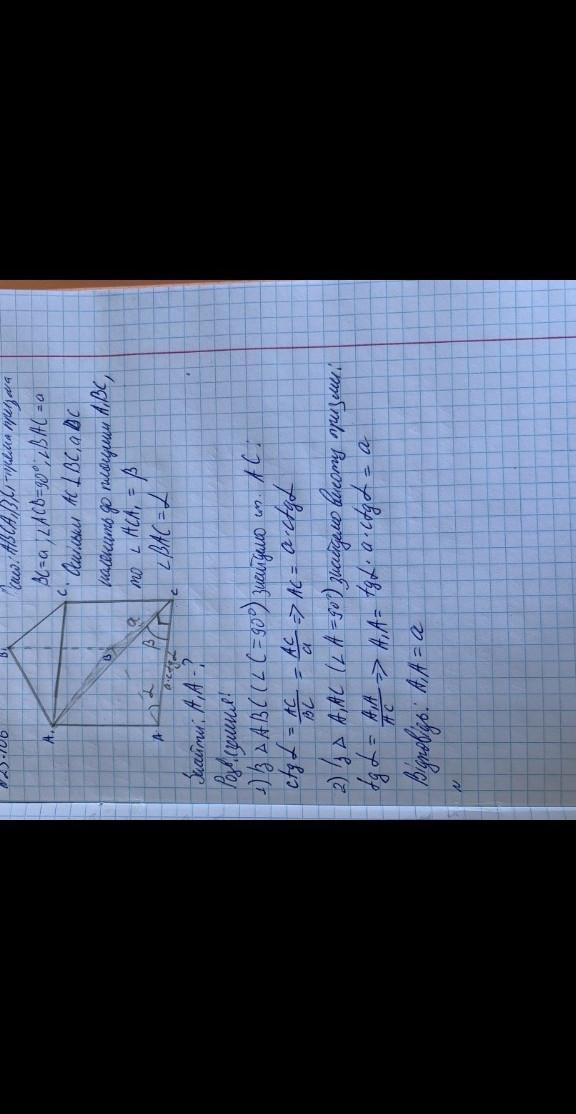 Дано: ABCA₁B₁C₁ - пряма призма
BC = a, ∠ACB = 90°; ∠BAC = a
Оскільки AC ⊥ BC, а BC
належить до площини A₁BC,
то ∠ACA₁ = β
∠BAC = L
B₁
A₁
C₁
B
a
β
L
a·ctgL
A
C
Знайти: A₁A - ?
Розв'язання:
1) Із △ABC (∠C = 90°) знайдемо AC:
ctgL = AC/BC = AC/a => AC = a·ctgL
2) Із △A₁AC (∠A = 90°) знайдемо висоту призми:
tgL = A₁A/AC => A₁A = tgL · a·ctgL = a
Відповідь: A₁A = a
N